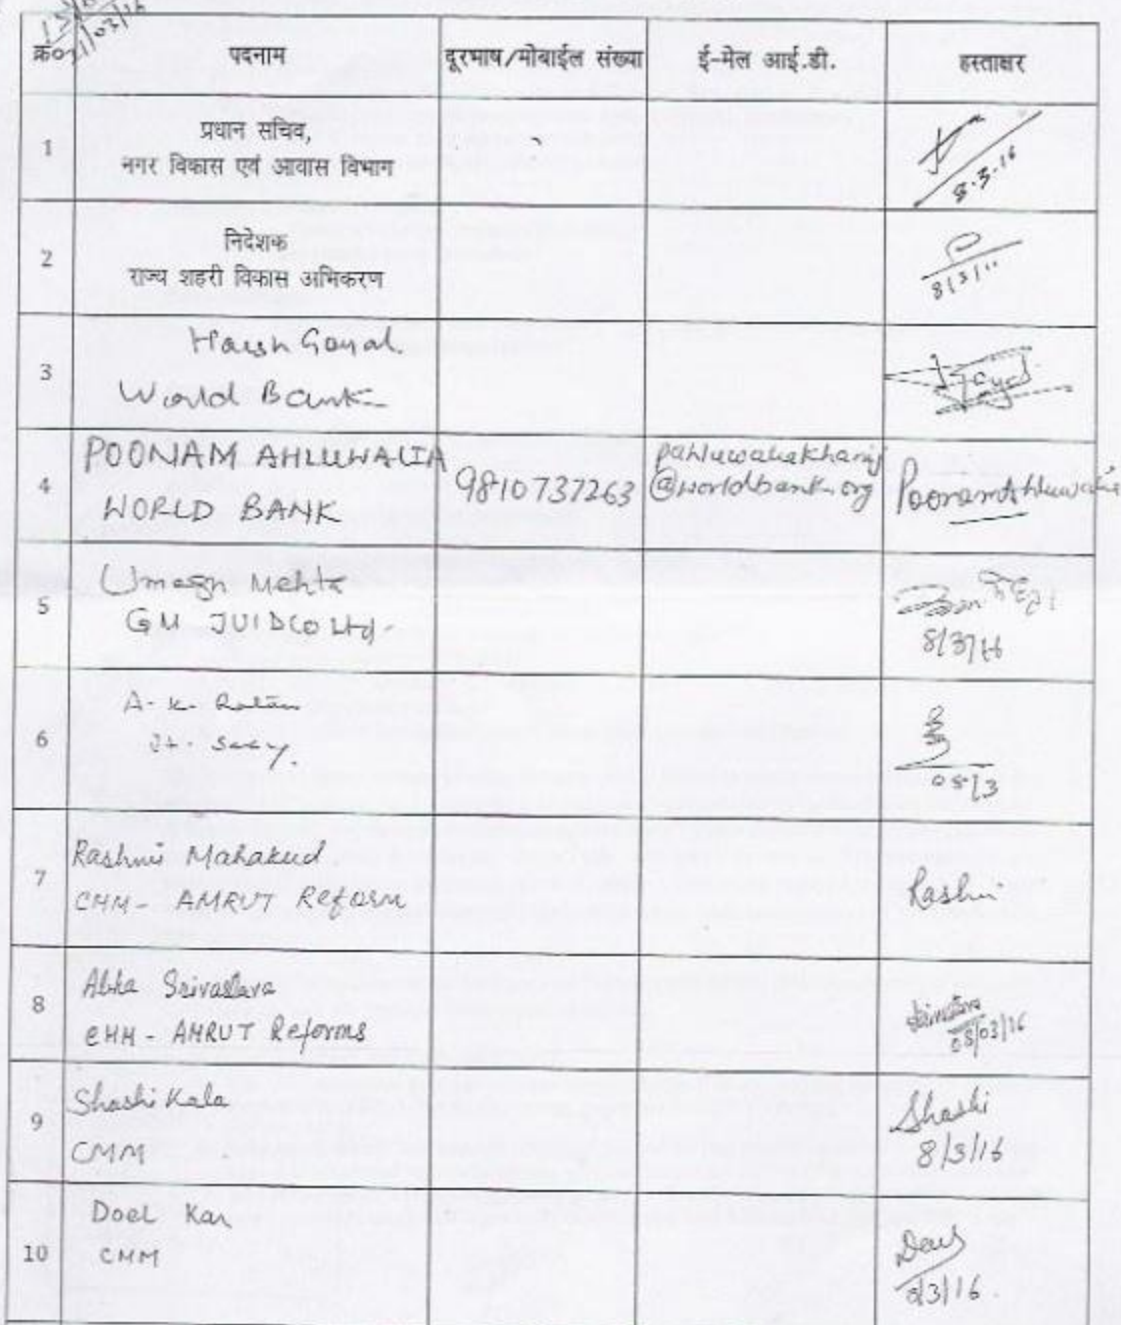 क्र०
पदनाम
दूरभाष/मोबाईल संख्या
ई-मेल आई.डी.
हस्ताक्षर
1
प्रधान सचिव,
नगर विकास एवं आवास विभाग
8.3.16
2
निदेशक
राज्य शहरी विकास अभिकरण
8/3/
3
Harsh Goyal
World Bank
Goyal
4
POONAM AHLUWALIA
WORLD BANK
9810737263
pahluwaliakharij
@worldbank.org
Poonam Ahluwalia
5
Umesh Mehta
GM JUIDCO Ltd.
8/3/16
6
A. K. Ratan
Jt. Secy.
08/3
7
Rashmi Mahakud
CMM- AMRUT Reform
Rashmi
8
Abha Srivastava
CMM - AMRUT Reforms
Srivastava
08/03/16
9
Shashi Kala
CMM
Shashi
8/3/16
10
Doel Kar
CMM
8/3/16.